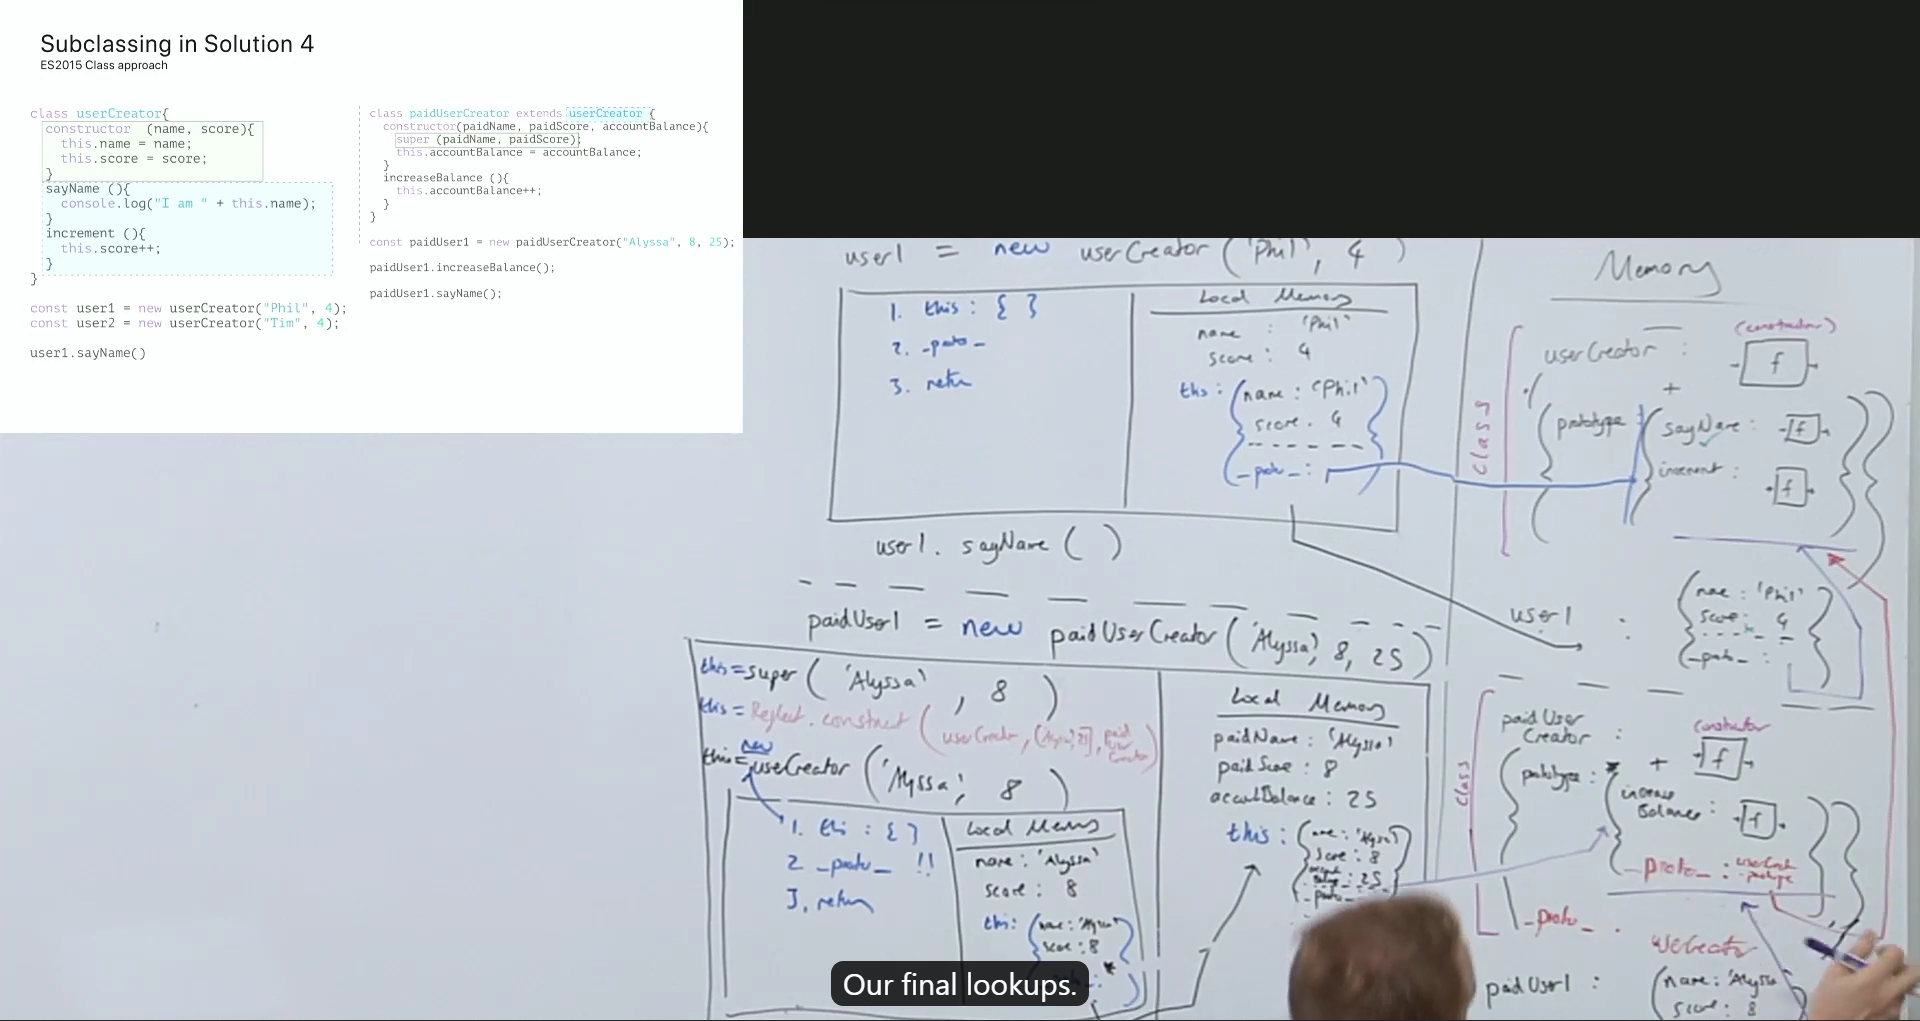 Subclassing in Solution 4
ES2015 Class approach
class userCreator{
constructor (name, score){
this.name = name;
this.score = score;
}
sayName (){
console.log("I am " + this.name);
}
increment (){
this.score++;
}
}
const user1 = new userCreator("Phil", 4);
const user2 = new userCreator("Tim", 4);
user1.sayName()
class paidUserCreator extends userCreator {
constructor(paidName, paidScore, accountBalance){
super (paidName, paidScore);
this.accountBalance = accountBalance;
}
increaseBalance (){
this.accountBalance++;
}
}
const paidUser1 = new paidUserCreator("Alyssa", 8, 25);
paidUser1.increaseBalance();
paidUser1.sayName();
user1 = new userCreator ('Phil', 4 )
1. this : { }
2. _proto_
3. return
Local Memory
name : 'Phil'
score : 4
this : { name : 'Phil'
score . 4
_proto_ : }
user1. sayName ( )
paidUser1 = new paidUserCreator ('Alyssa', 8, 25)
this = super ( 'Alyssa' , 8 )
this = Reflect.construct ( userCreator,
this = new userCreator ('Alyssa', 8 )
1. this : { }
2 _proto_ !!
3. return
Local Memory
name : 'Alyssa'
score : 8
this : { name : 'Alyssa'
score : 8
Local Memory
paidName : 'Alyssa'
paidScore : 8
accountBalance : 25
this : { name : 'Alyssa'
score : 8
: 25
_proto_
Memory
(constructor)
userCreator : f
+
prototype { sayName : f
increment : f
class
user1 : { name : 'Phil'
score : 4
_proto_ : }
class
paidUser
Creator :
constructor
f
+
prototype : { increase
Balance : f
_proto_ :
_proto_ :
userCreator
paidUser1 : { name : 'Alyssa'
score : 8
Our final lookups.